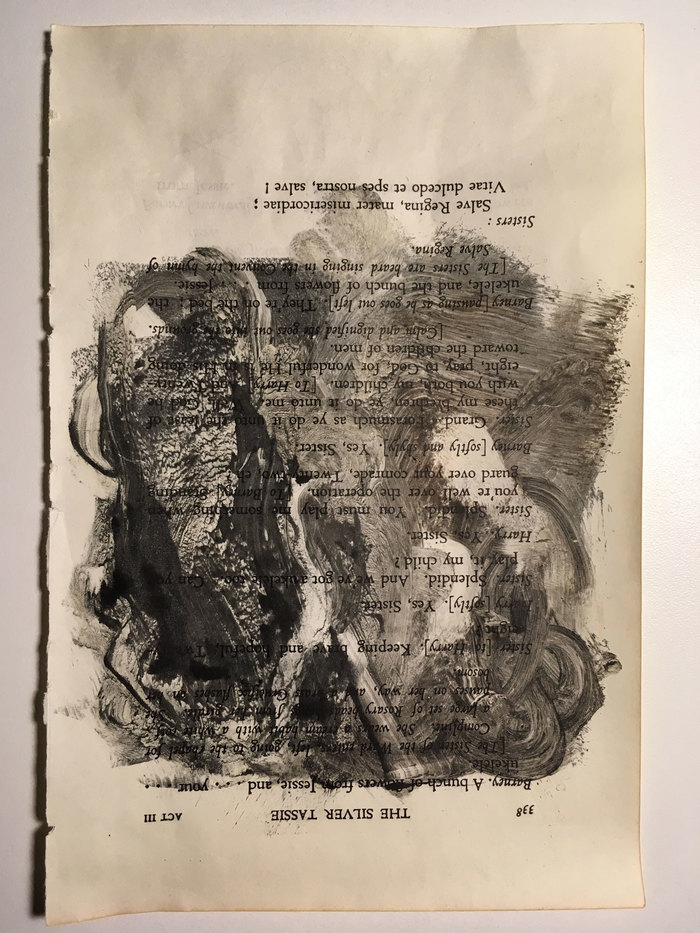 338 THE SILVER TASSIE ACT III
Barney. A bunch of flowers from Jessie, and . . . your . . .
ukelele.
[The Sister of the Ward enters, left, going to the chapel for
Compline. She wears a cream habit with a white
a large set of Rosary beads from her girdle. She
pauses on her way, and a brass Crucifix flashes on her
bosom.
Sister [to Harry]. Keeping brave and hopeful,
eight ?
Harry [softly]. Yes, Sister.
Sister. Splendid. And we've got a ukelele too. Can you
play it, my child ?
Harry. Yes, Sister.
Sister. Splendid. You must play me something when
you're well over the operation. [To Barney] Standing
guard over your comrade, Twenty-two, eh ?
Barney [softly and shyly]. Yes, Sister.
Sister. Grand. Forasmuch as ye do it unto the least of
these my brethren, ye do it unto me. Well, God be
with you both, my children. [To Harry] And Twenty-
eight, pray to God, for wonderful He is in His doing
toward the children of men.
[Calm and dignified she goes out into the grounds.
Barney [pausing as he goes out left]. They're on the bed ; the
ukelele, and the bunch of flowers from . . . Jessie.
[The Sisters are heard singing in the Convent the hymn of
Salve Regina.
Sisters :
Salve Regina, mater misericordiae ;
Vitae dulcedo et spes nostra, salve !